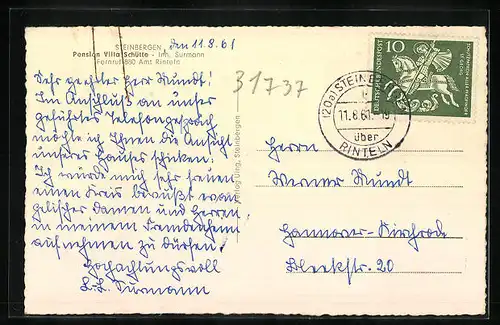 STEINBERGEN, den 11.8.61
Pension Villa Schütte - Inh. Surmann
Fernruf 880 Amt Rinteln
Sehr geehrter Herr Mundt!
Im Anschluß an unser
geführtes Telefongespräch
möchte ich Ihnen die Ansicht
unseres Hauses schicken.
Ich würde mich sehr freuen
einen Kreis bewußt evan-
gelischer Damen und Herren
in meinem Fremdenheim
aufnehmen zu dürfen.
Hochachtungsvoll
Surmann
31737
Steinbergen
10
DEUTSCHE BUNDESPOST
(20a) STEINB
11.8.61
über
RINTELN
Herrn
Werner Mundt
Hannover-Kirchrode
Bleekstr. 20